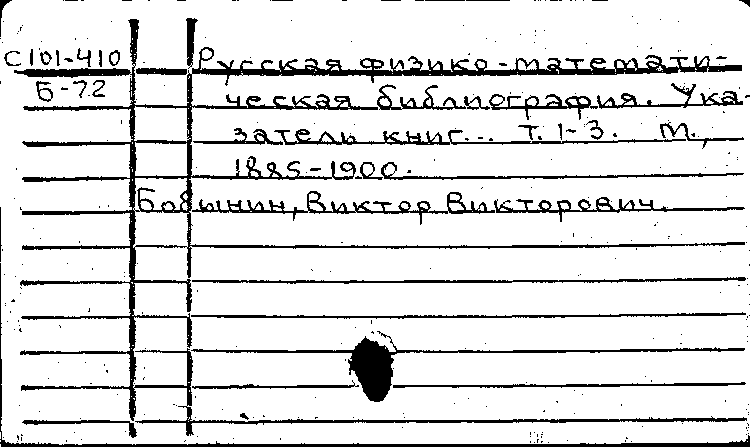 С101-410 Русская физико-математи-
Б-72 ческая библиография. Ука-
затель книг... Т. 1-3. М.,
1885-1900.
Бобынин, Виктор Викторович.